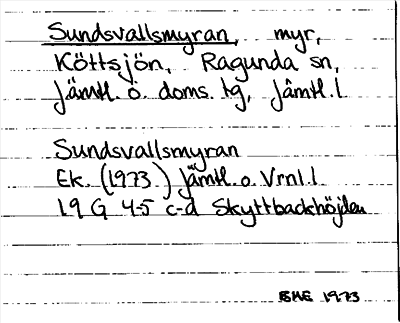 Sundsvallsmyran, myr,
Köttsjön, Ragunda sn,
Jämtl. ö. doms. tg, Jämtl. l
Sundsvallsmyran
Ek. (1973) Jämtl. o. Vrnl l
19 G 4-5 c-d Skyttbackhöjden
BME 1973